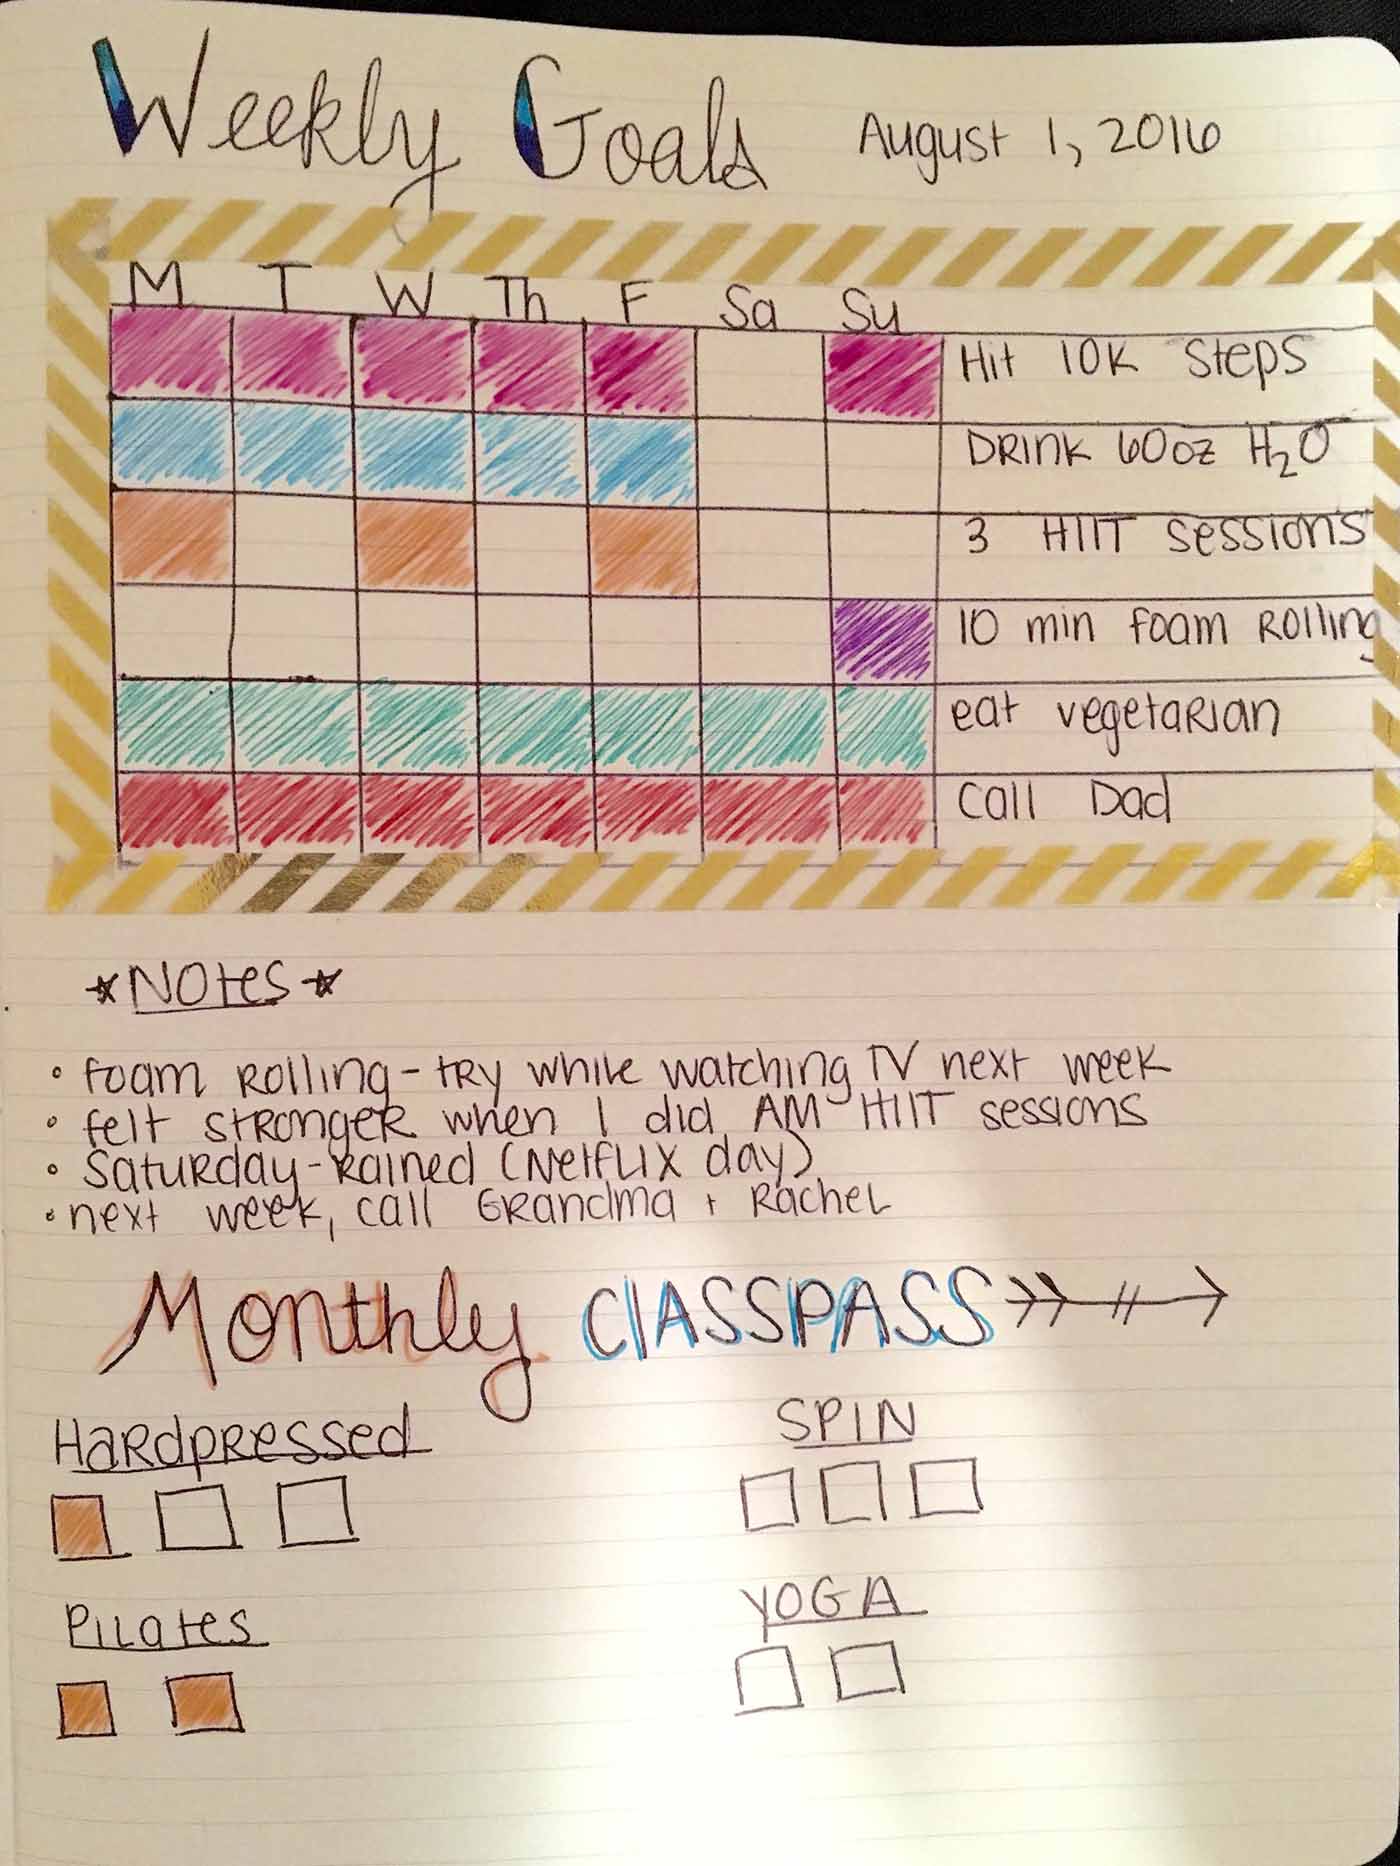 Weekly Goals August 1, 2016
M T W Th F Sa Su
Hit 10K Steps
Drink 60oz H₂O
3 HIIT sessions
10 min foam Rolling
eat vegetarian
Call Dad
*Notes*
• foam Rolling - try while watching TV next week
• felt stronger when I did AM HIIT sessions
• Saturday - Rained (Netflix day)
• next week, call Grandma + Rachel
Monthly ClASSPASS
Hardpressed SPIN
Pilates YOGA